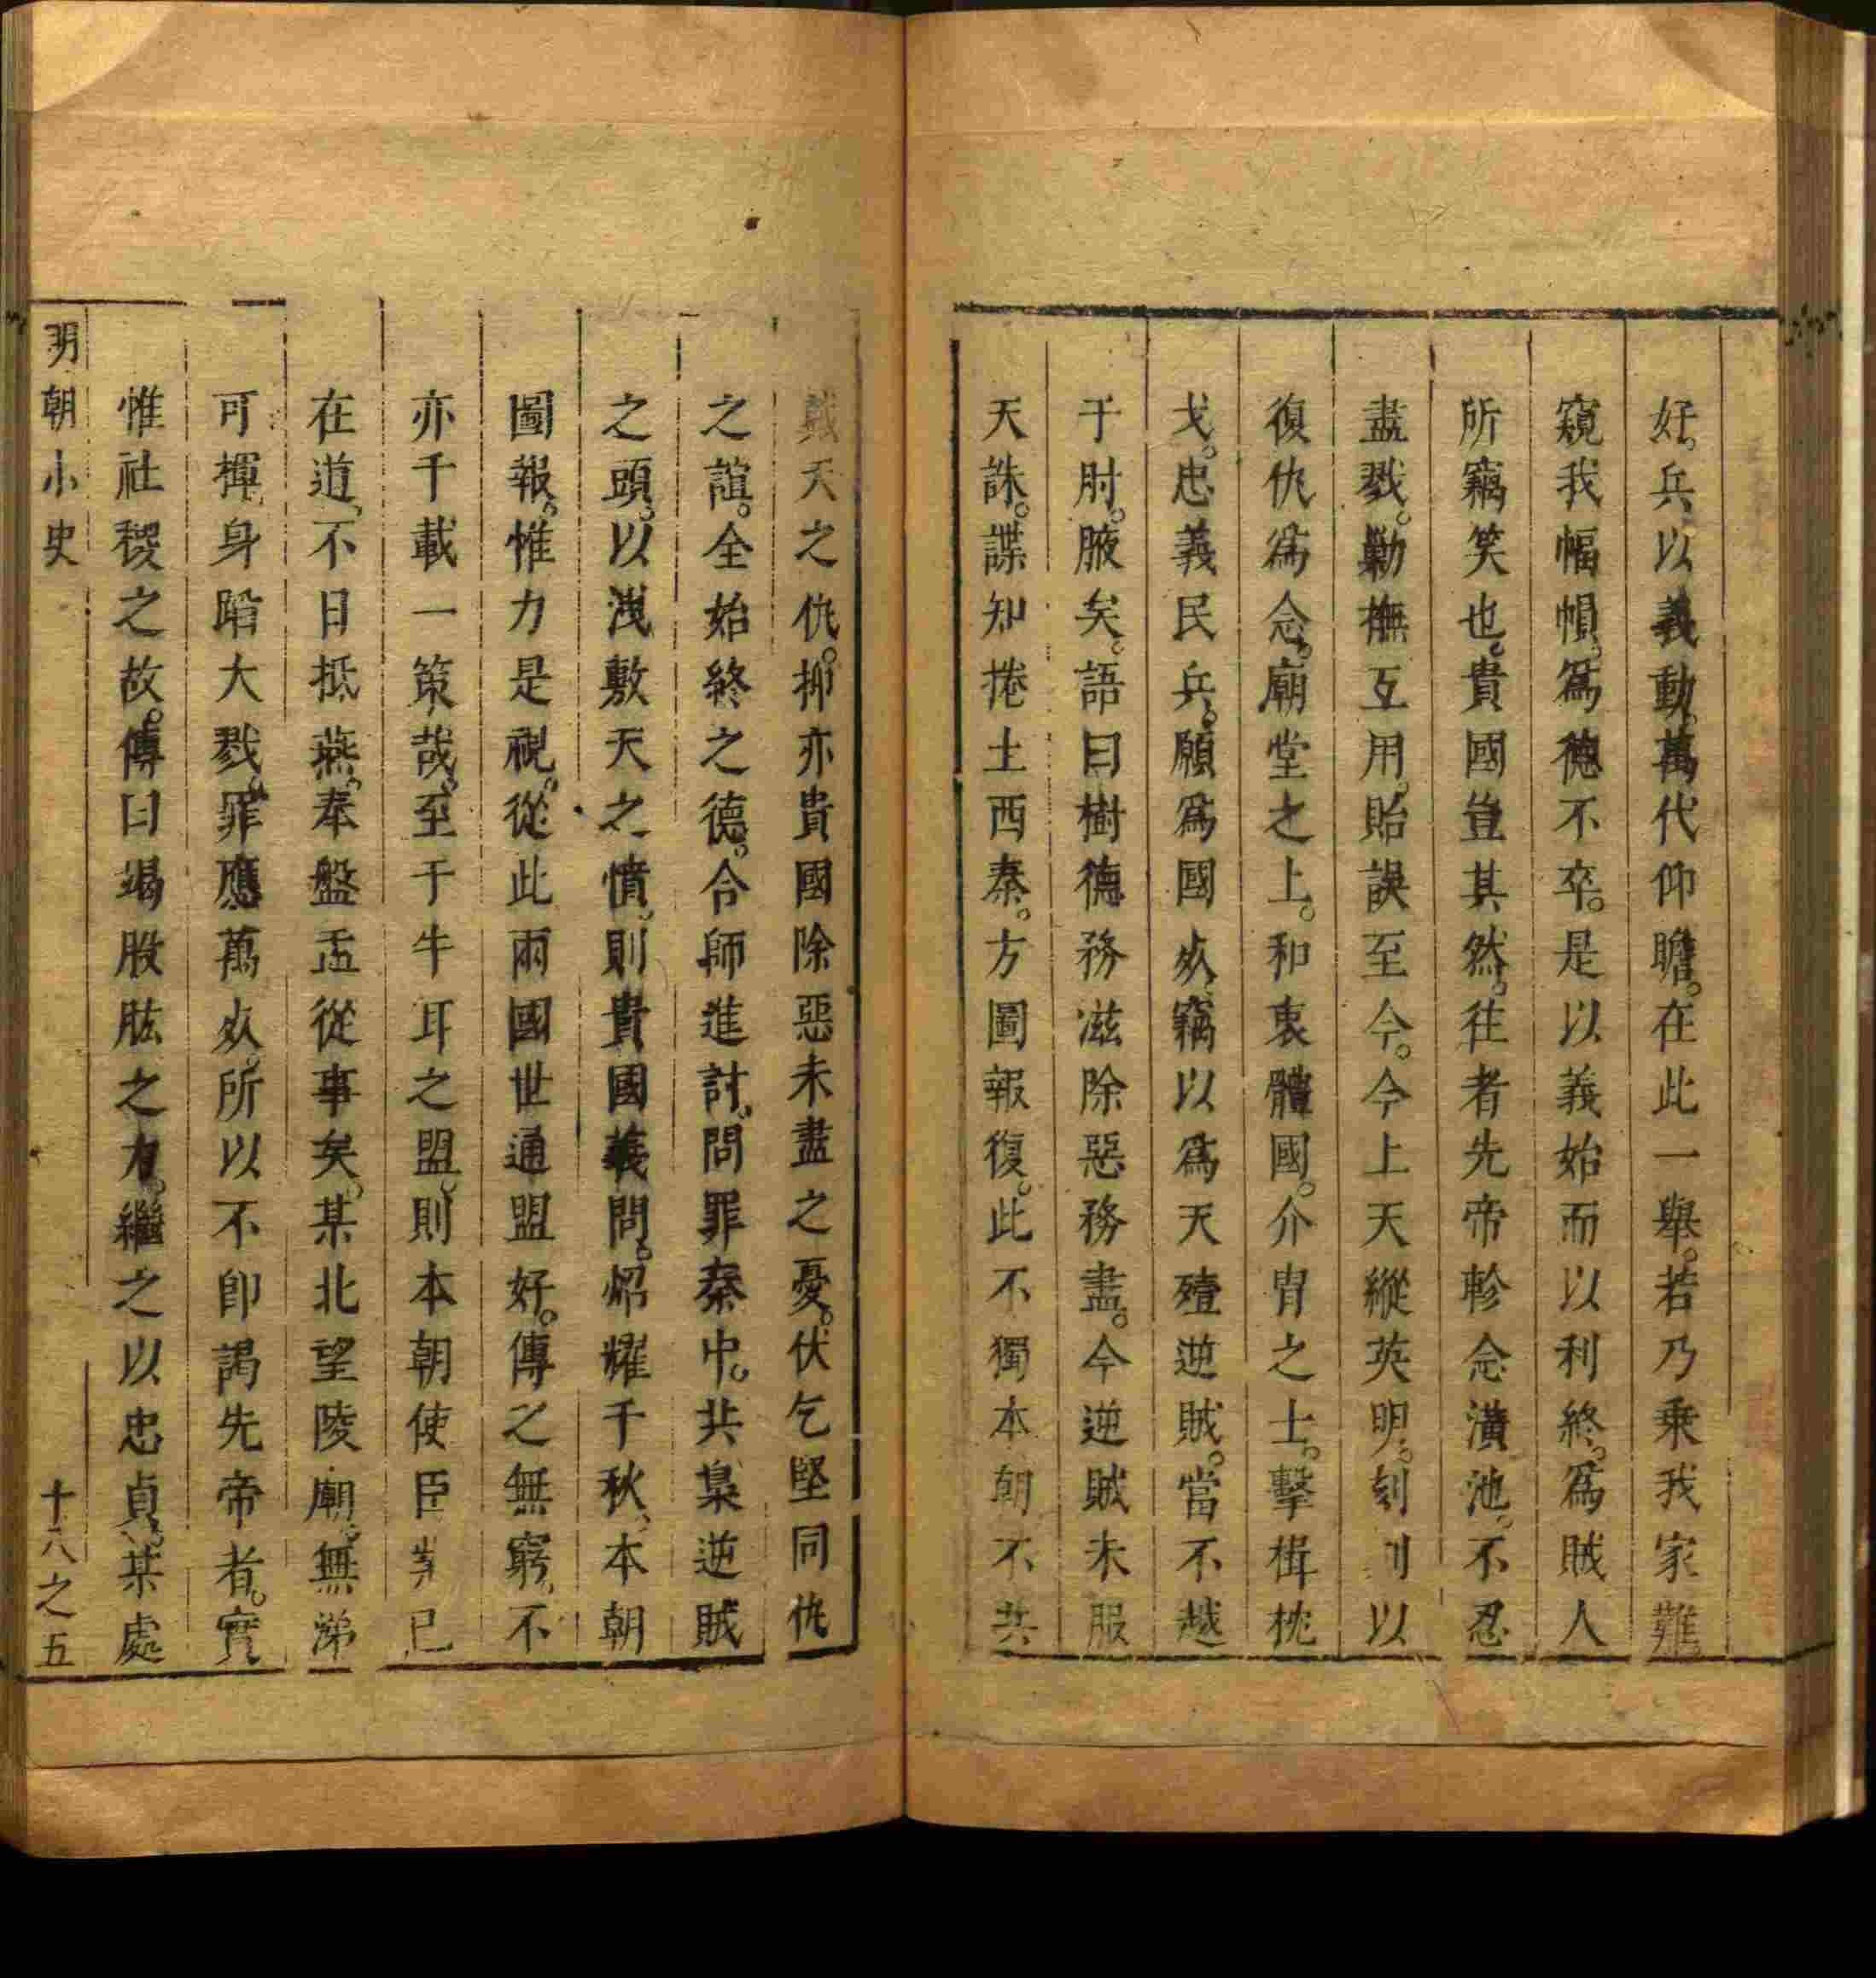 好。兵以義動。萬代仰瞻。在此一舉。若乃乗我家難
窺我幅幀。爲德不卒。是以義始而以利終。爲賊人
所竊笑也。貴國豈其然。往者先帝軫念潢池。不忍
盡戮。勦撫互用。貽誤至今。今上天縱英明。刻刻以
復仇爲念。廟堂之上。和衷體國。介冑之士。擊楫枕
戈。忠義民兵。願爲國死。竊以爲天殪逆賊。當不越
于肘腋矣。語曰樹德務滋除惡務盡。今逆賊未服
天誅。諜知捲土西秦。方圖報復。此不獨本朝不共
戴天之仇。抑亦貴國除惡未盡之憂。伏乞堅同仇
之誼。全始終之德。合師進討。問罪秦中。共梟逆賊
之頭。以洩敷天之憤。則貴國義問。炤耀千秋。本朝
圖報。惟力是視。從此兩國世通盟好。傳之無窮。不
亦千載一策哉。至于牛耳之盟。則本朝使臣 已
在道。不日抵燕。奉盤盂從事矣。某北望陵廟。無涕
可揮。身陷大戮。罪應萬死。所以不卽謁先帝者。實
惟社稷之故。傳曰竭股肱之力。繼之以忠貞。某處
明朝小史
十八之五